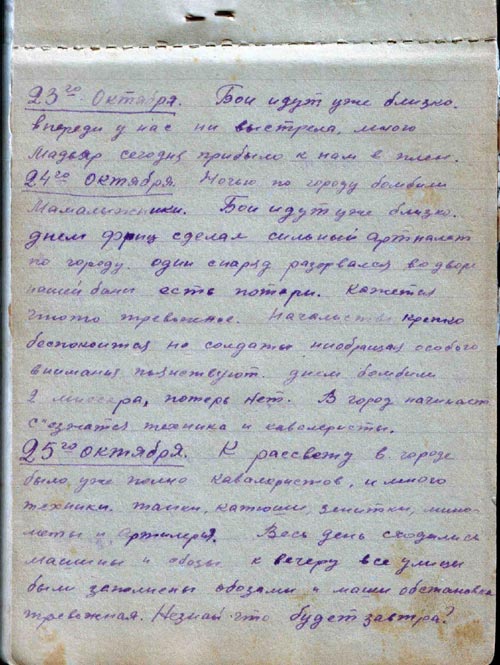 23го Октября. Бои идут уже близко.
впереди у нас ни выстрела, много
Мадьяр сегодня прибыло к нам в плен.
24го Октября. Ночью по городу бомбили
Мамалыжники. Бои идут уже близко.
днем фриц сделал сильный артналет
по городу. один снаряд разорвался во дворе
нашей бани есть потери. Кажется
чтото тревожное. Начальство крепко
беспокоится но солдаты необращая особого
внимания пьянствуют днем бомбили
2 мисера, потерь нет. В город начинает
с"езжатся техника и кавалеристы.
25го Октября. К рассвету в городе
было уже полно кавалеристов, и много
техники. танки, катюши, зенитки, мино-
меты и артилерия. Весь день сходились
машины и обозы к вечеру все улицы
были заполнены обозами и маши обстановка
тревожная. Незнай что будет завтра?